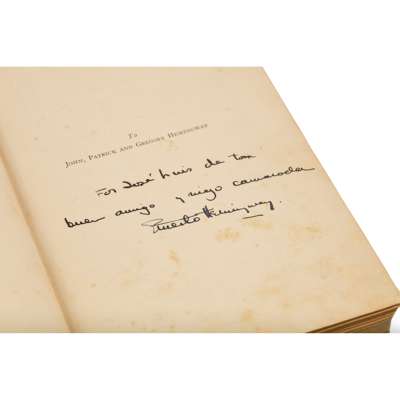 To
JOHN, PATRICK AND GREGORY HEMINGWAY
For José Luis de tan
buen amigo y viejo camarada
Ernesto Hemingway.